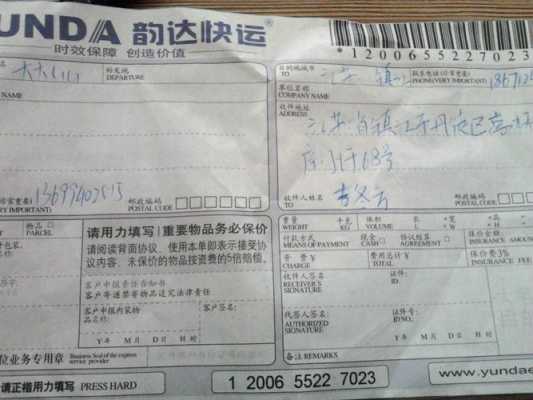 YUNDA 韵达快运
时效保障 创造价值
1200655227023
DEPARTURE
NAME
目的地城市
TO
江苏 镇江
PHONE(VERY IMPORTANT)
单位名称
COMPANY NAME
收件地址
ADDRESS
江苏省镇江市丹徒区高
13699402515
VERY IMPORTANT)
邮政编码
POSTAL CODE
收件人姓名
TO
邮政编码
POSTAL CODE
物品
PARCEL
请用力填写 重要物品务必保价
请阅读背面协议，使用本单即表示接受协
议内容。未保价的物品按资费的5倍赔偿。
客户申报责任告知书
客户寄递禁寄物品追究法律责任
客户申报内装物
品名
客户签名:
Y 年 M 月 D 日 H 时
位业务专用章
Business Seal of the express
service provider
请正楷用力填写 PRESS HARD
重量
WEIGHT
千克
KG
体积
VOLUME
长
L
宽
W
高
H
付款方式
MEANS OF PAYMENT
现金
CASH
协议结算
AGREEMENT
保价金额
INSURANCE AMOUN
资费 ¥
CHARGE
费用总计 ¥
TOTAL
保价费3%
INSURANCE FEE
收件人签名
RECEIVER'S
SIGNATURE
证件:
ID.
代签人签名
AUTHORIZED
SIGNATURE
证件号:
ID NO.
Y 年 M 月 D 日 H 时
备注 REMARKS
1 2006 5522 7023
www.yundae